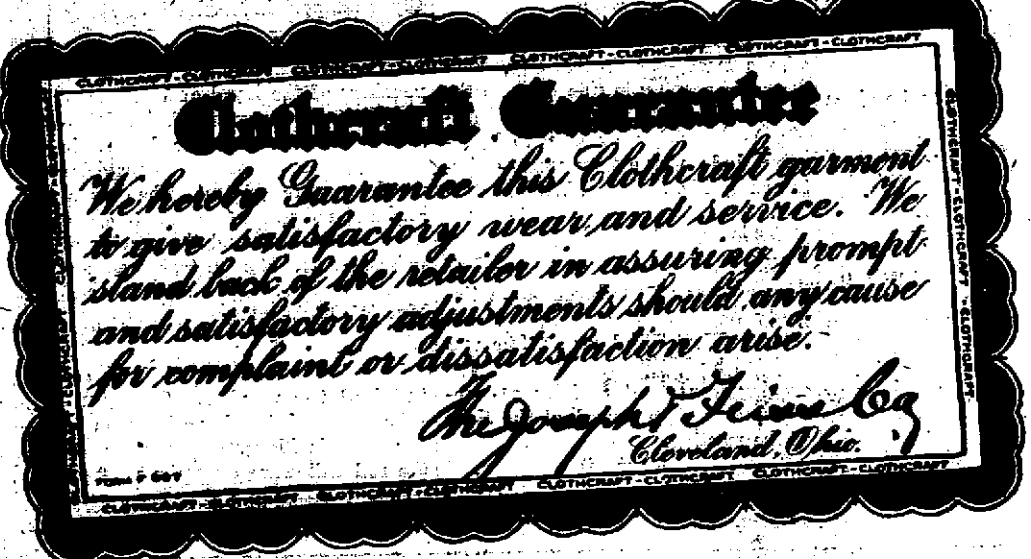 CLOTHCRAFT - CLOTHCRAFT - CLOTHCRAFT - CLOTHCRAFT - CLOTHCRAFT - CLOTHCRAFT - CLOTHCRAFT - CLOTHCRAFT
Clothcraft Guarantee
We hereby Guarantee this Clothcraft garment
to give satisfactory wear and service. We
stand back of the retailer in assuring prompt
and satisfactory adjustments should any cause
for complaint or dissatisfaction arise.
The Joseph & Feiss Co
Cleveland, Ohio.
FORM
CLOTHCRAFT - CLOTHCRAFT - CLOTHCRAFT - CLOTHCRAFT - CLOTHCRAFT - CLOTHCRAFT - CLOTHCRAFT - CLOTHCRAFT